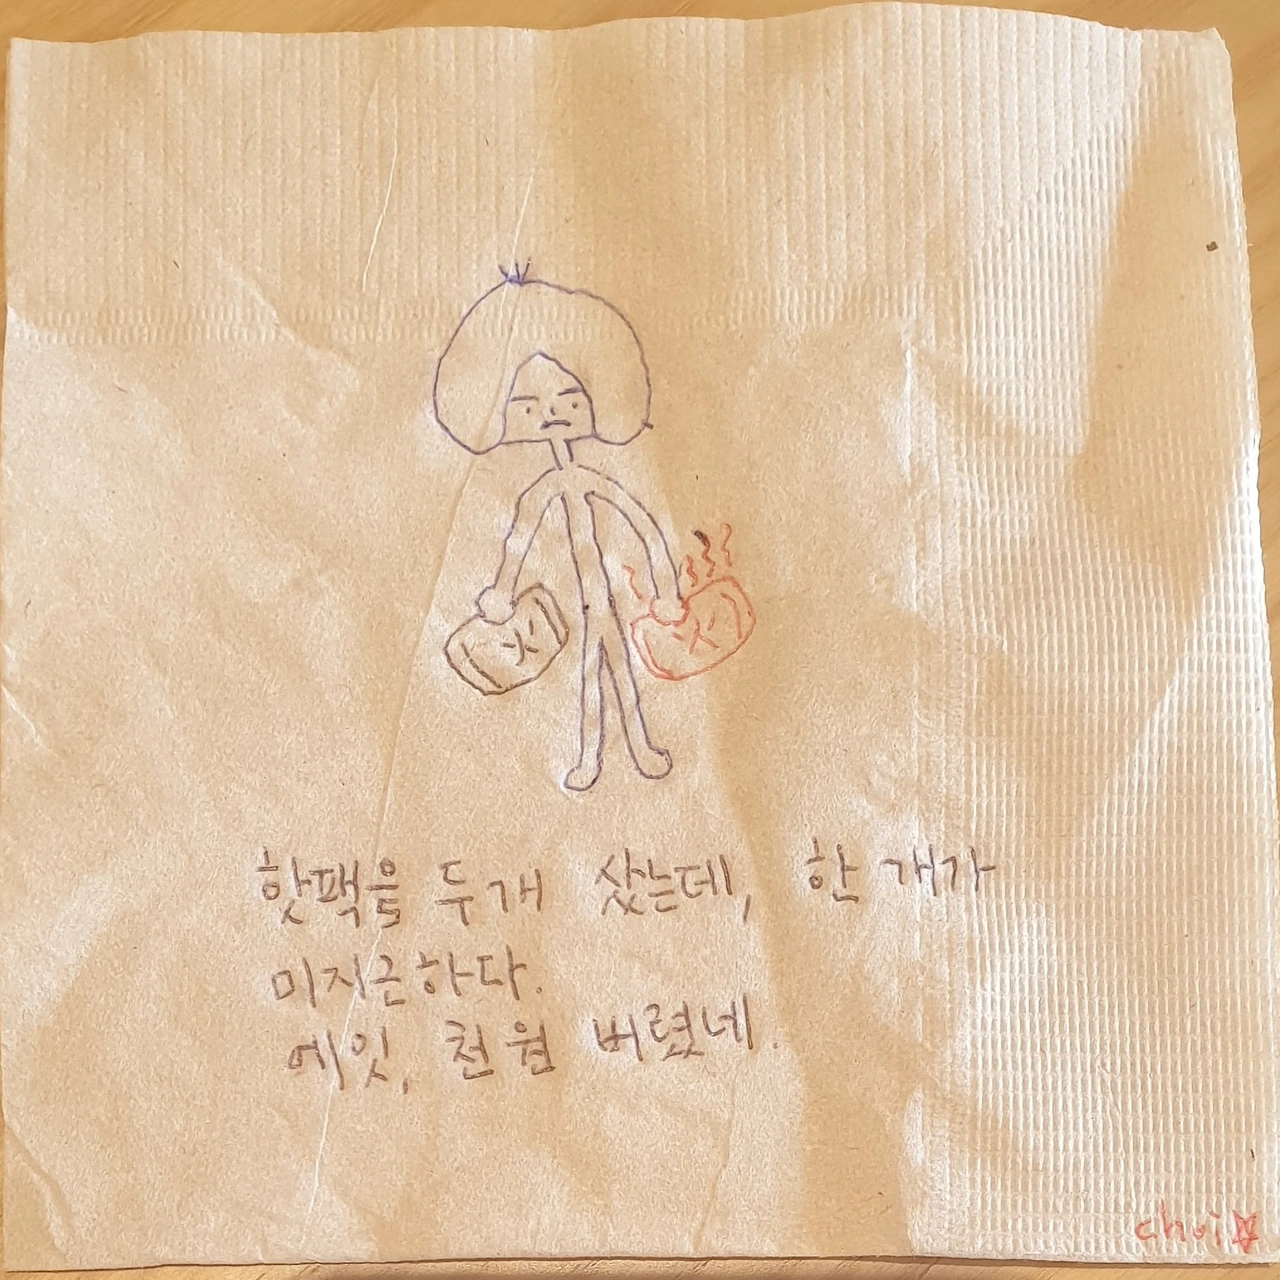 핫팩을 두개 샀는데, 한 개가
미지근하다.
에잇, 천원 버렸네.
choi